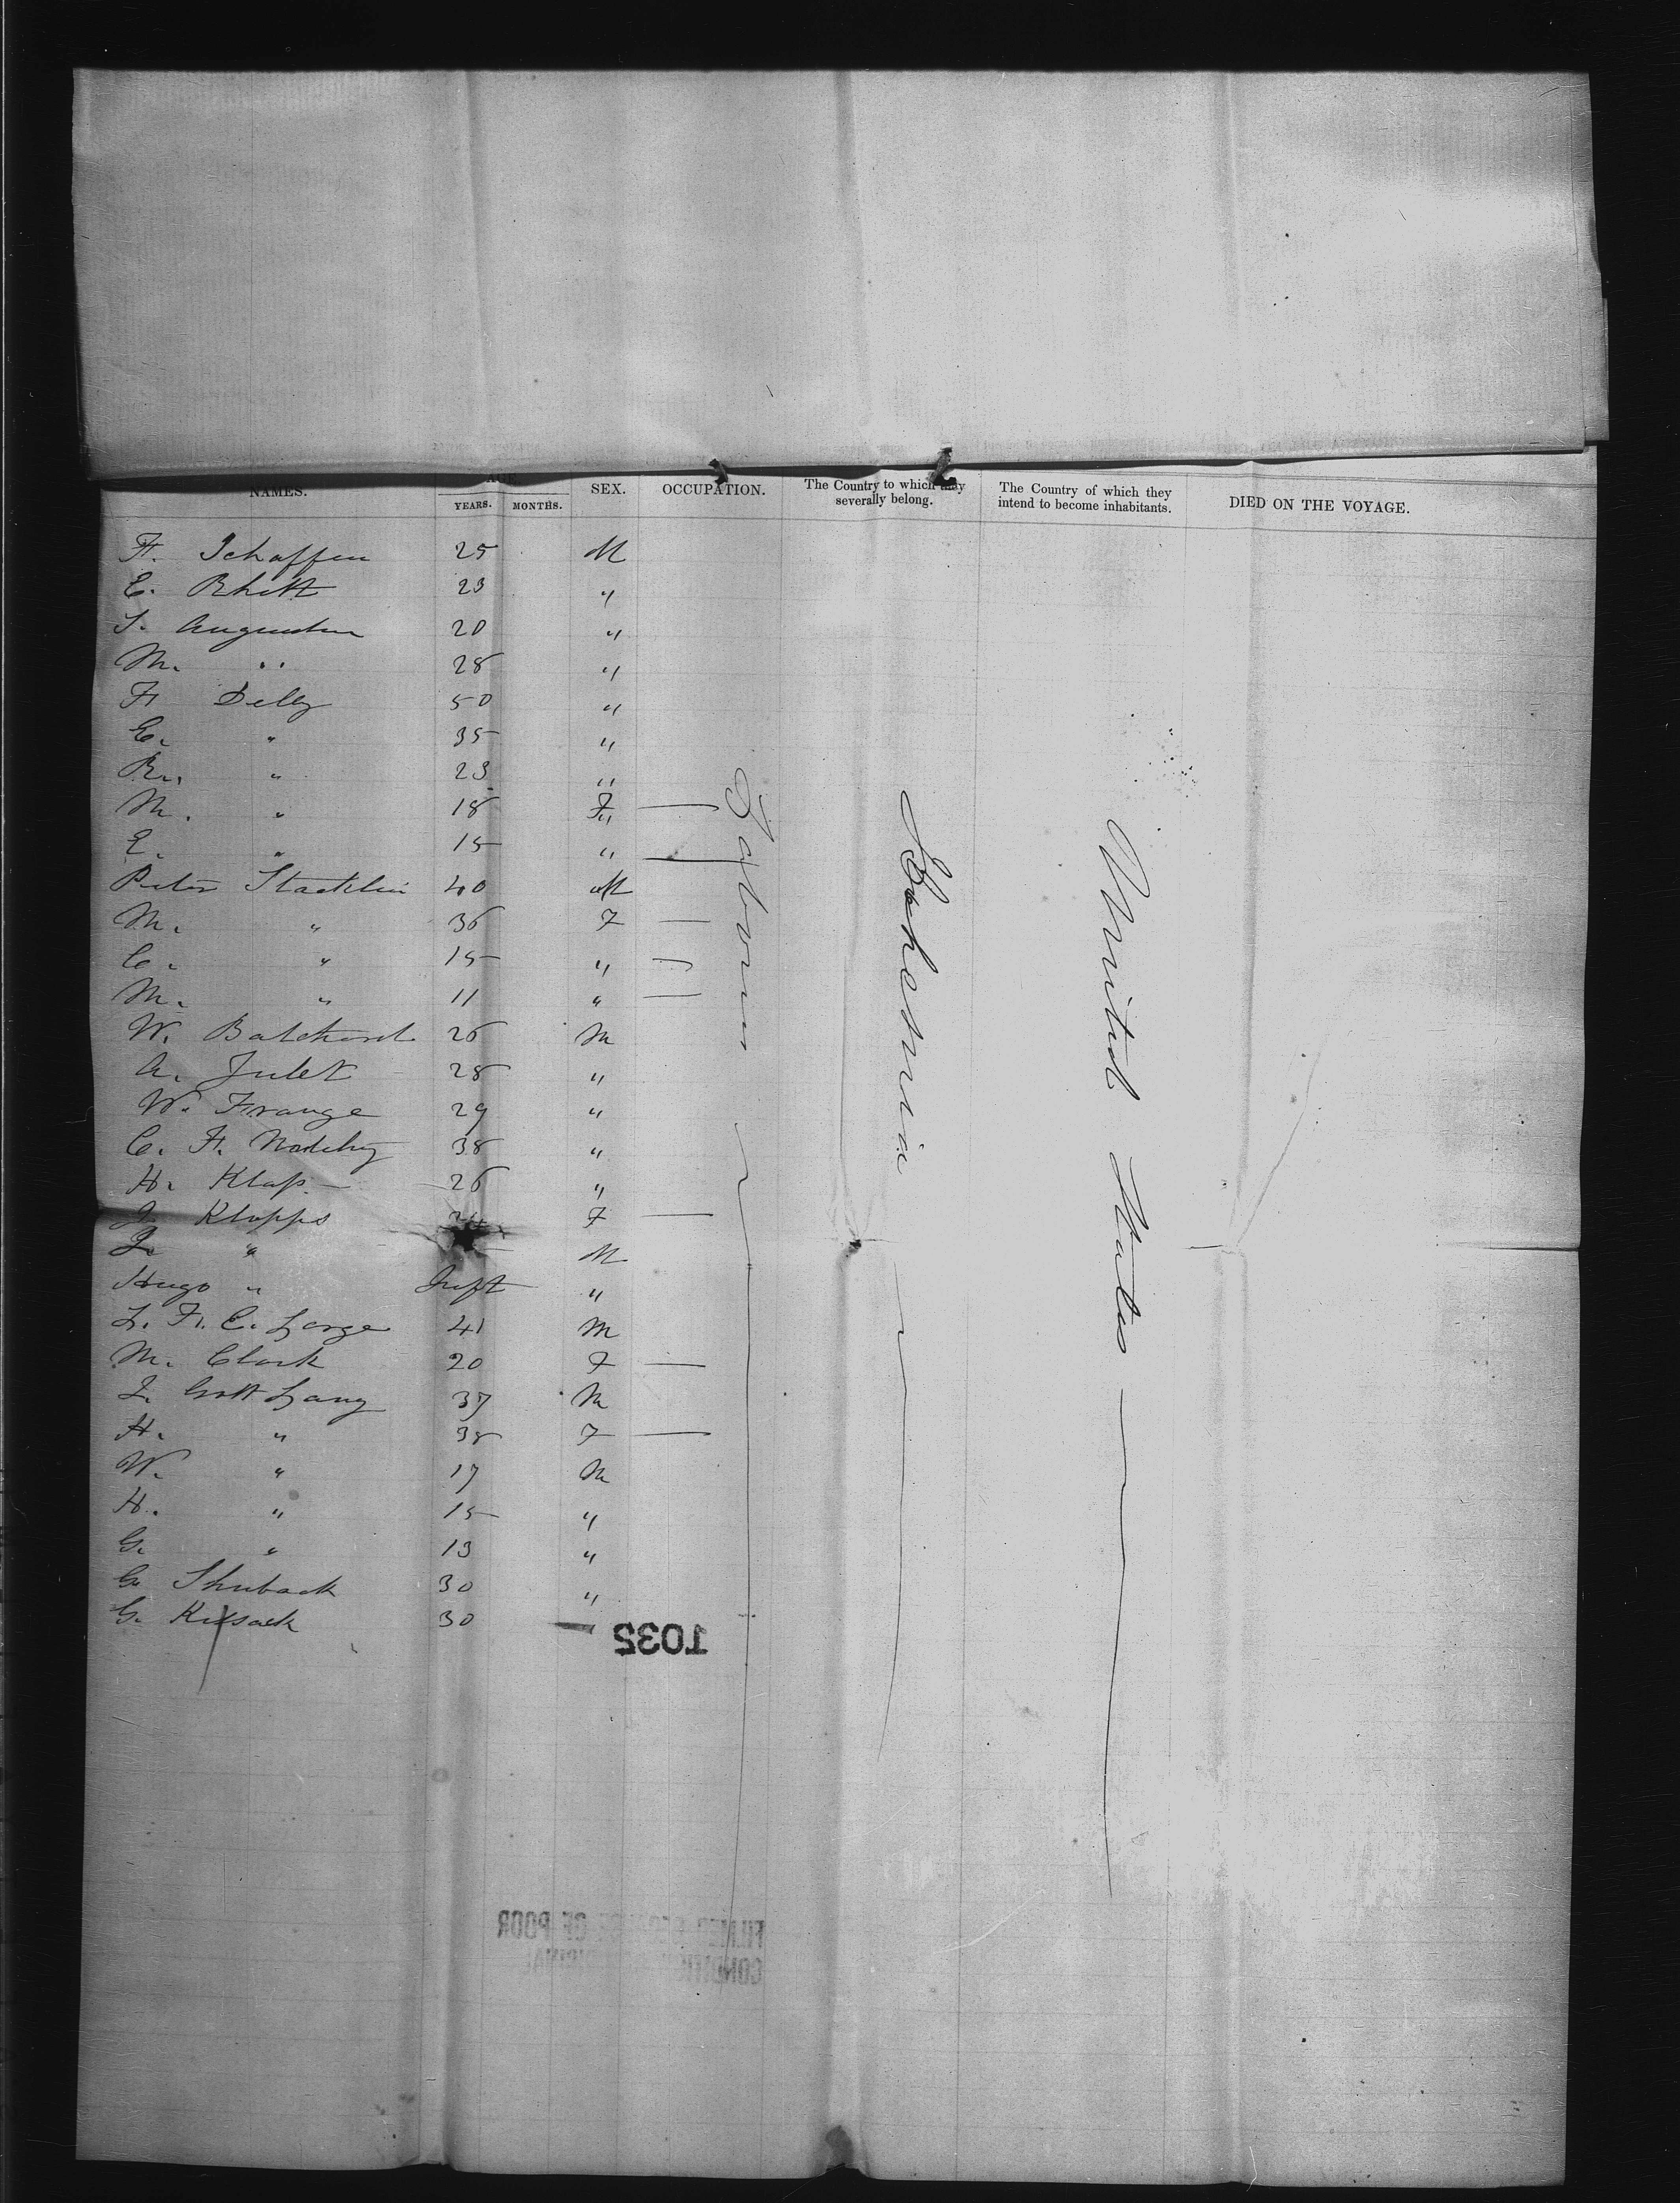 NAMES. AGE. SEX. OCCUPATION. The Country to which they severally belong. The Country of which they intend to become inhabitants. DIED ON THE VOYAGE.
YEARS. MONTHS.
F. Schaffen 25 M
E. Rhett 23 "
S. Augustin 20 "
M. " 28 "
F. Dilly 50 "
E. " 35 "
R. " 23 "
M. " 18 F —
E. " 15 " —
Peter Stacklin 40 M
M. " 36 F —
C. " 15 " —
M. " 11 " —
W. Batchord 26 M
A. Julet 28 "
W. Frange 29 "
C. F. 38 "
H. Klaps 26 "
J. Klopps 24 F —
J. " M
Hugo " Inft "
L. F. C. Lange 41 M
M. Clark 20 F —
J. Gott Lang 37 M
H. " 38 F —
W. " 17 M
H. " 15 "
G. " 13 "
G. Shuback 30 "
G. Kussack 30
Labourers
Bohemia
United States
1032
FILMED BECAUSE OF POOR
CONDITION OF ORIGINAL